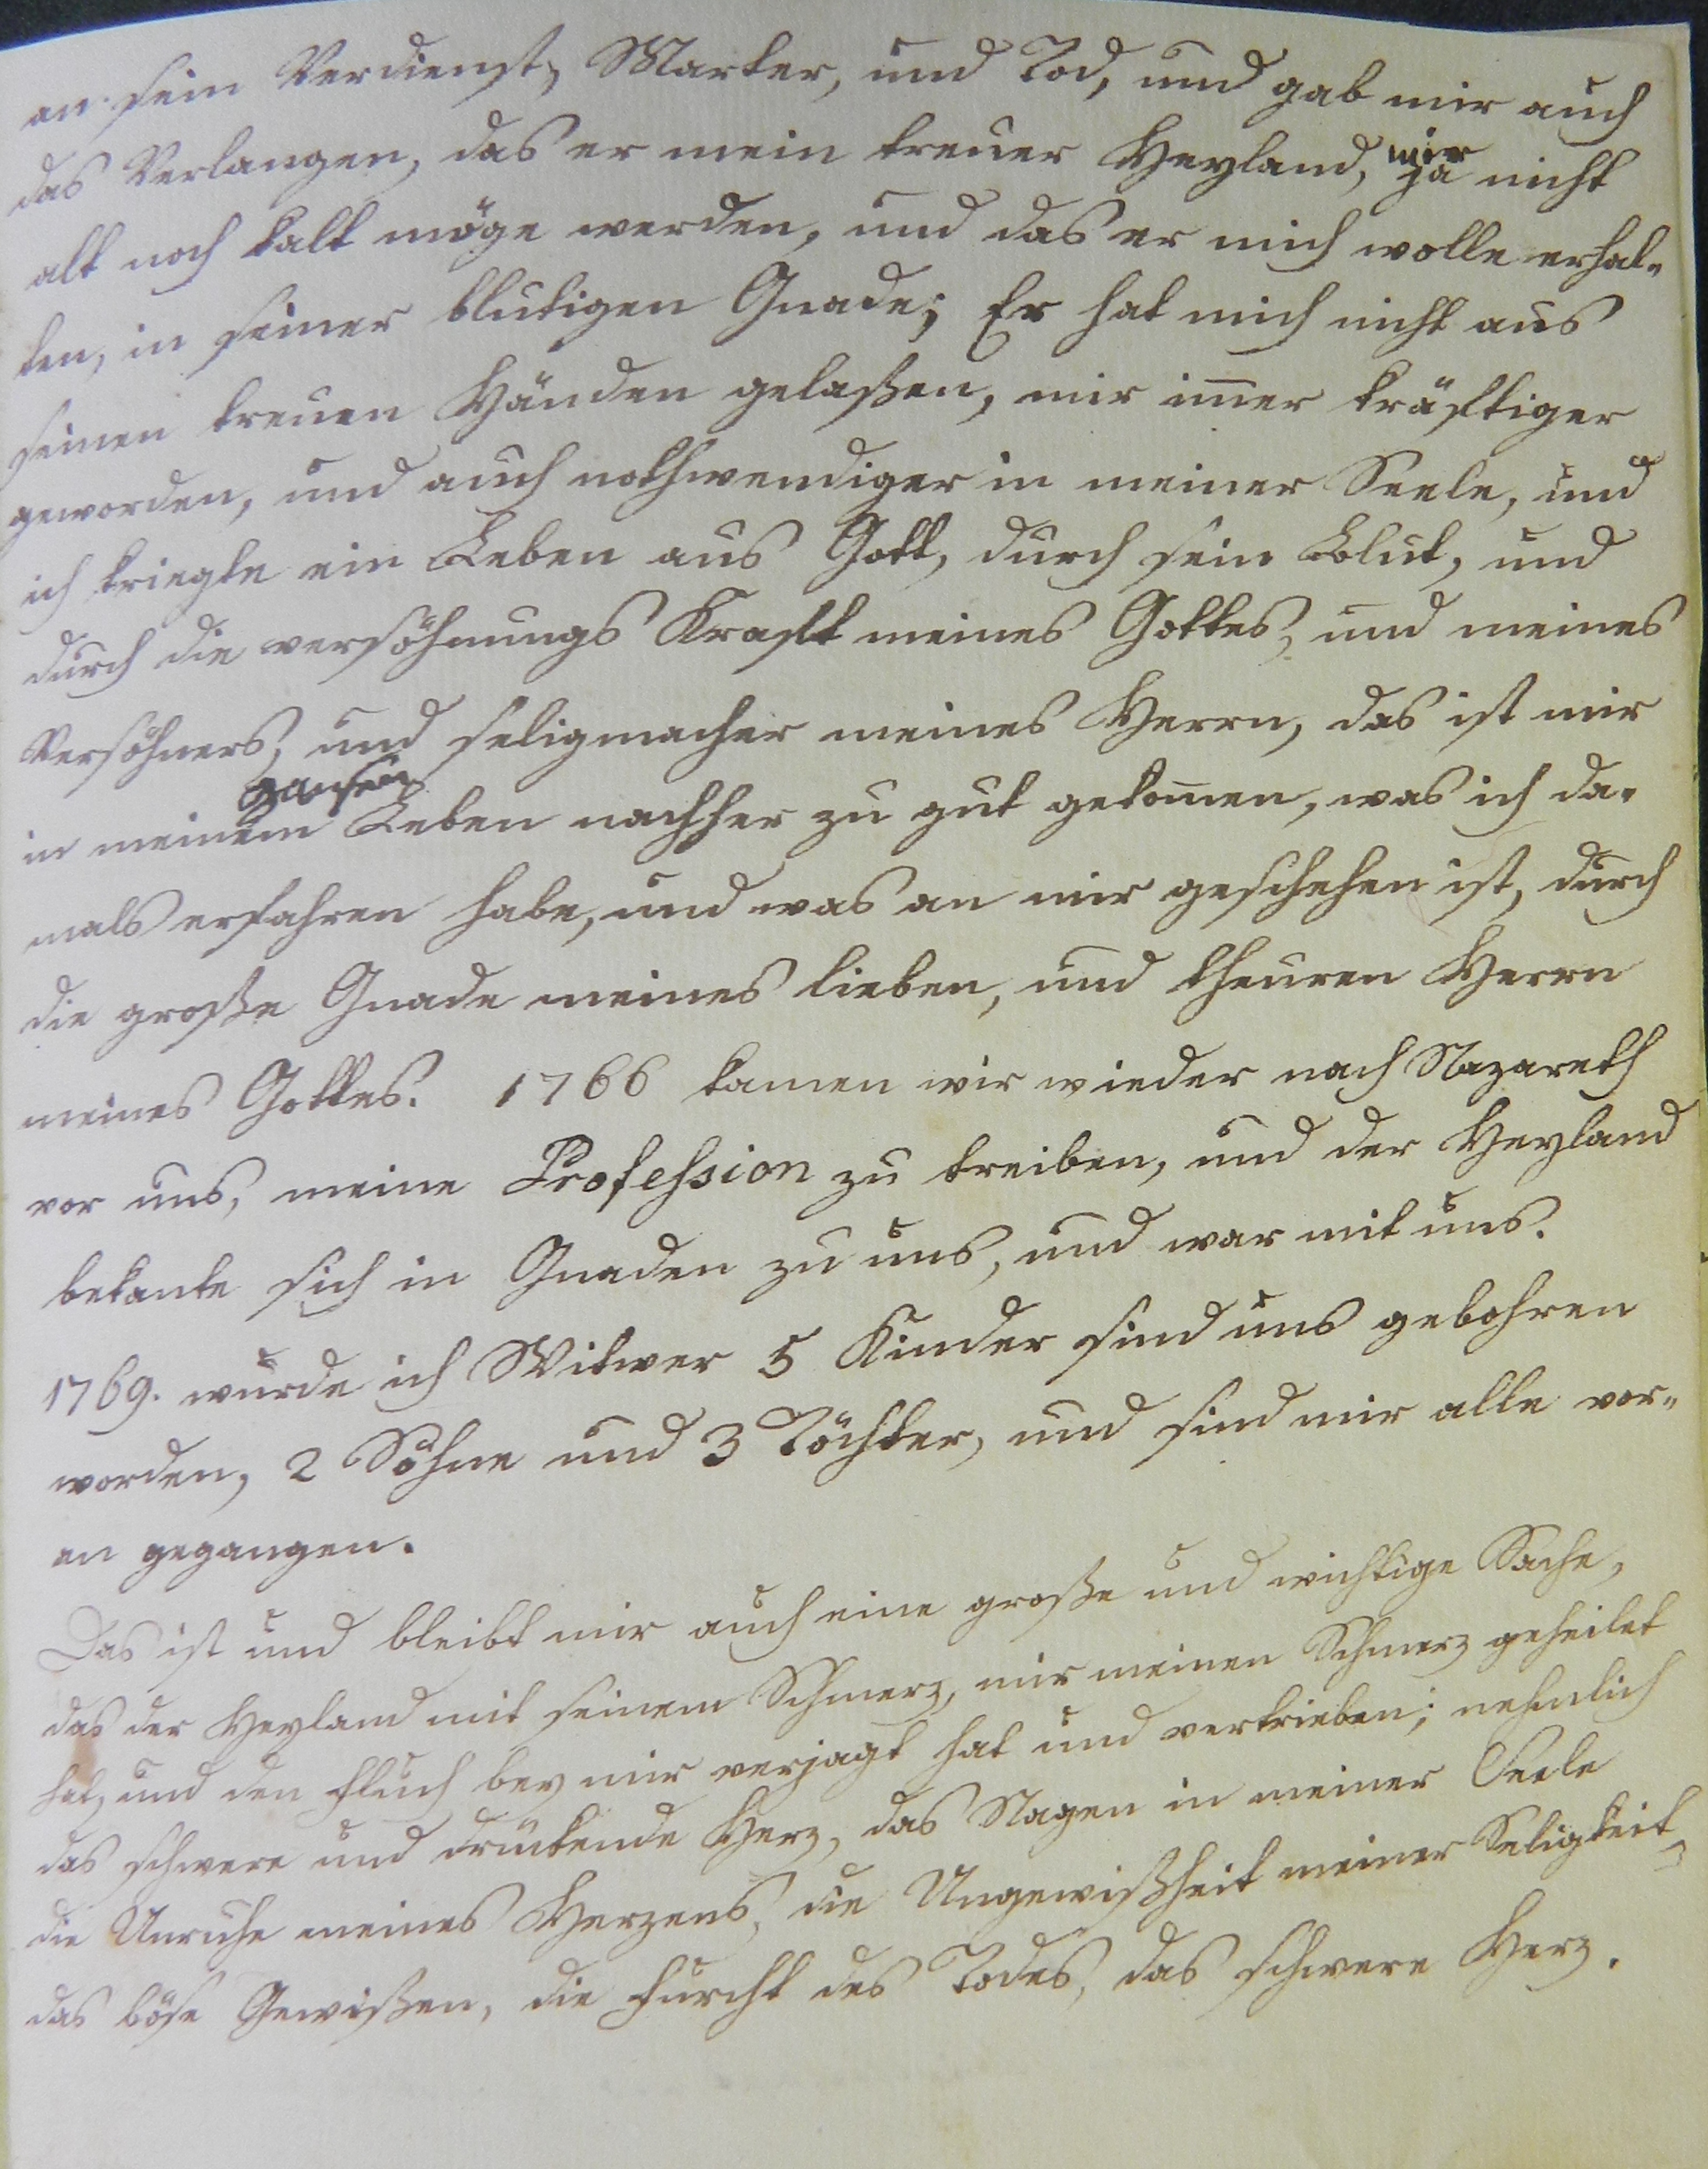 an sein Verdienst, Marter, und Tod, und gab mir auch
das Verlangen, das er mein treuer Heyland, mir ja nicht
alt noch kalt möge werden, und das er mich wolle erhal-
ten, in seiner blutigen Gnade; Er hat mich nicht aus
seinen treuen Händen gelaßen, mir im̅er kräftiger
geworden, und auch nothwendiger in meiner Seele, und
ich kriegte ein Leben aus Gott, durch sein Blut, und
durch die versöhnungs Kraft meines Gottes, und meines
Versöhners, und seligmacher meines Herrn, das ist mir
in meinem ganzen Leben nachher zu gut gekom̅en, was ich da-
mals erfahren habe, und was an mir geschehen ist, durch
die große Gnade meines lieben, und theuren Herrn
meines Gottes. 1766 kamen wir wieder nach Nazareth
vor uns, meine Profession zu treiben, und der Heyland
bekante sich in Gnaden zu uns, und war mit uns.
1769. wurde ich Witwer 5 Kinder sind uns gebohren
worden, 2 Söhne und 3 Töchter, und sind mir alle vor-
an gegangen.
Das ist und bleibt mir auch eine große und wichtige Sache,
das der Heyland mit seinem Schmerz, mir meinen Schmerz geheilet
hat, und den Fluch bey mir verjagt hat und vertrieben; nehmlich
das schwere und drückende Herz, das Nagen in meiner Seele
die Unruhe meines Herzens, die Ungewißheit meiner Seligkeit,
das böse Gewißen, die Furcht des Todes, das schwere Herz.